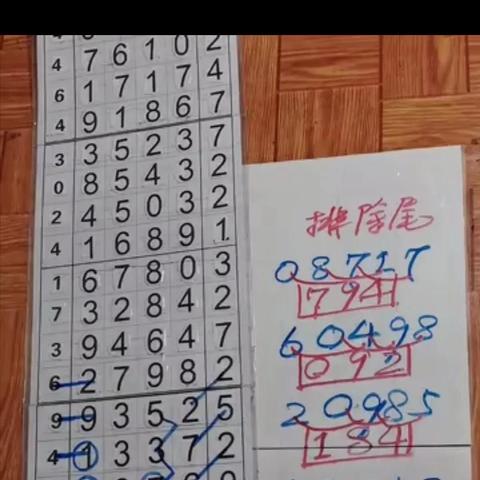 4 7 6 1 0 2
6 1 7 1 7 4
4 9 1 8 6 7
3 3 5 2 3 7
0 8 5 4 3 2
2 4 5 0 3 2
4 1 6 8 9 1
1 6 7 8 0 3
7 3 2 8 4 2
3 9 4 6 4 7
6 2 7 9 8 2
9 9 3 5 2 5
4 1 3 3 7 2
排除尾
08717
794
60498
092
20985
184